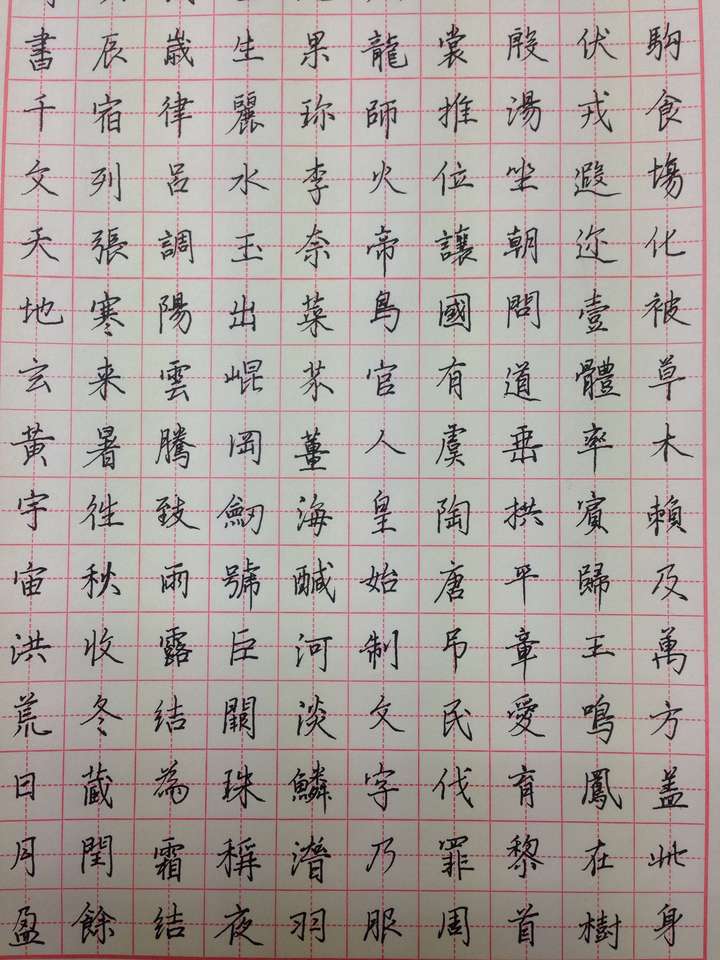 書千文天地玄黃宇宙洪荒日月盈
辰宿列張寒来暑徃秋收冬蔵閏餘
歲律呂調陽雲騰致雨露結為霜結
生麗水玉出崐岡劒號巨闕珠稱夜
果珍李奈菜芥薑海醎河淡鱗潛羽
龍師火帝鳥官人皇始制文字乃服
裳推位讓國有虞陶唐吊民伐罪周
殷湯坐朝問道垂拱平章愛育黎首
伏戎遐迩壹體率賓歸王鳴鳳在樹
駒食場化被草木賴及萬方盖此身